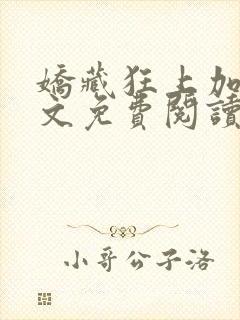 嬌藏狂上加
文免費閱讀
小哥公子洛